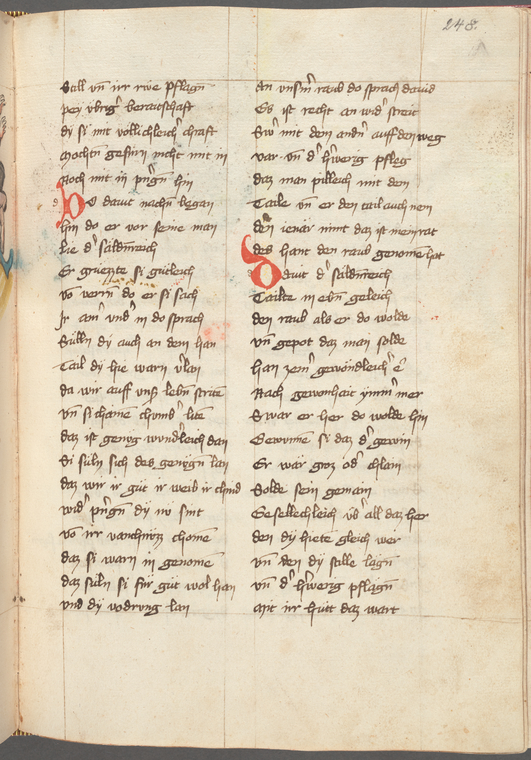 248.
Soll vn̄ ir rwe pflagn̄
pey ubrig' beraitschaft
dy si mit chraft
Mochtn nicht mit in
Noch mit in hin
Do dauit nachn̄ began
hin do er vor seine man
Lie d' säldn̄reich
Er gruezte si gütleich
do er si sach
Jr am' vnd' in do sprach
Sülln dy auch an dem han
Tail dy hie warn v'lan
da wir auff vns' lebn̄ strite
vn̄ si chaine chomd' lite
daz ist genüg wund'leich dan
Si süln sich des genügn̄ lan
daz wir ir güt ir weib ir chind
wid' dy nü sint
vō irr chome
daz si warn in genome
daz süln si für güt wol han
vnd dy vodrung lan
An vnsm̄ raub do sprach dauid
Es ist recht an wid' streit
Sw' mit dem andn̄ auff den weg
var vn̄ d' h'werig pfleg
daz man pilleich mit dem
Taile vn̄ er den tail auch nem
den̄ ienär nimt daz ist mein rat
des hant den raub genome hat
Dauit d' säldn̄reich
Tailte in ebn̄ geleich
den raub als er do wolde
vn̄ gepot daz man solde
han zem gewondleich' e
Nach gewonhait ymm' mer
Swar er her do wolde hin
Gewinne si daz d' gewin
Er wär groz od' chlain
Solde sein gemain
Gesellechleich üb' all daz her
den dy hiete gleich wer
vn̄ den dy stille lagn̄
vn̄ d' h'werig pflagn̄
Mit irr hutt daz wart